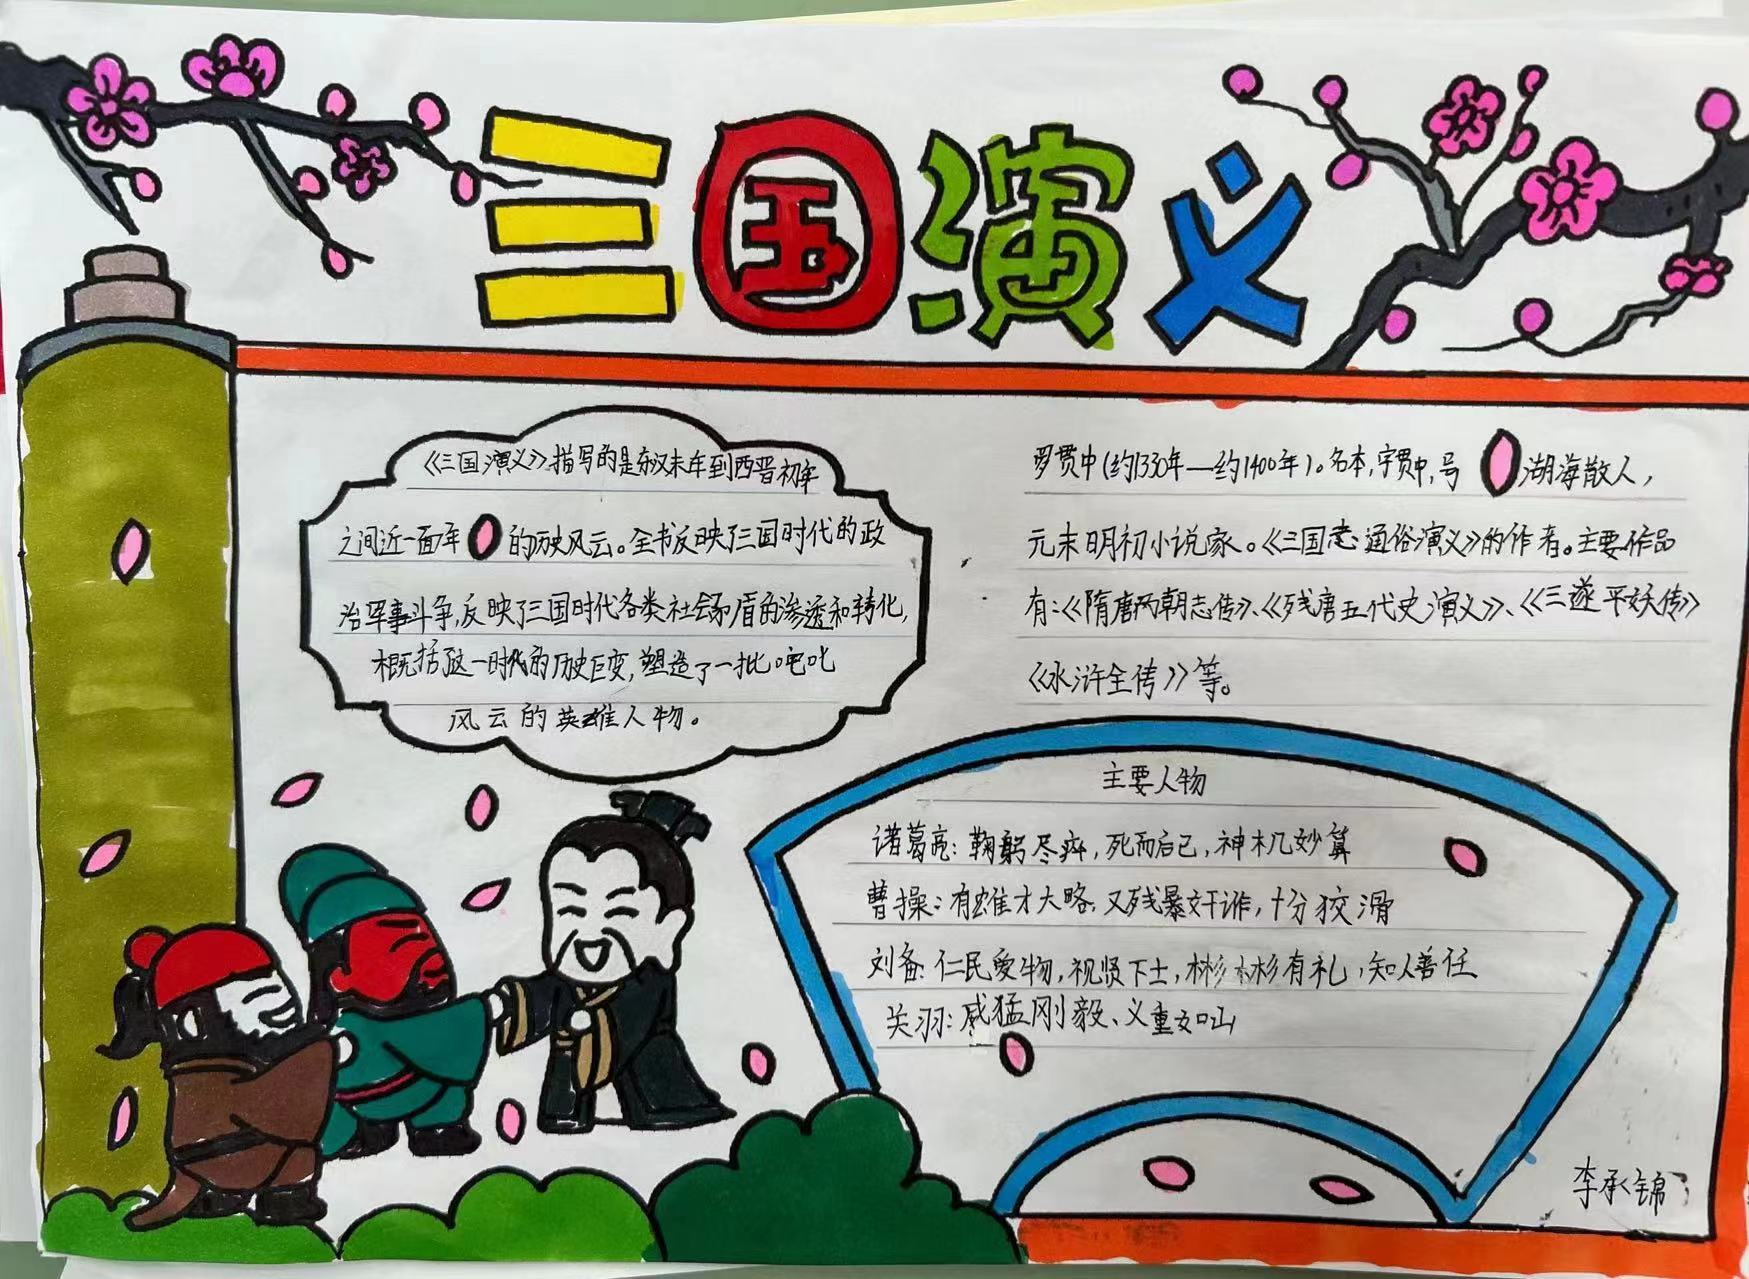 三国演义
《三国演义》描写的是东汉末年到西晋初年
之间近一面年的历史风云。全书反映了三国时代的政
治军事斗争,反映了三国时代各类社会矛盾的渗透和转化,
概括了这一时代的历史巨变,塑造了一批咤叱
风云的英雄人物。
罗贯中(约1330年—约1400年)。名本,字贯中,号湖海散人,
元末明初小说家。《三国志通俗演义》的作者。主要作品
有:《隋唐两朝志传》、《残唐五代史演义》、《三遂平妖传》
《水浒全传》等。
主要人物
诸葛亮:鞠躬尽瘁,死而后已,神机妙算
曹操:有雄才大略,又残暴奸诈,十分狡滑
刘备:仁民爱物,视贤下士,彬彬有礼,知人善任
关羽:威猛刚毅、义重如山
李承锦